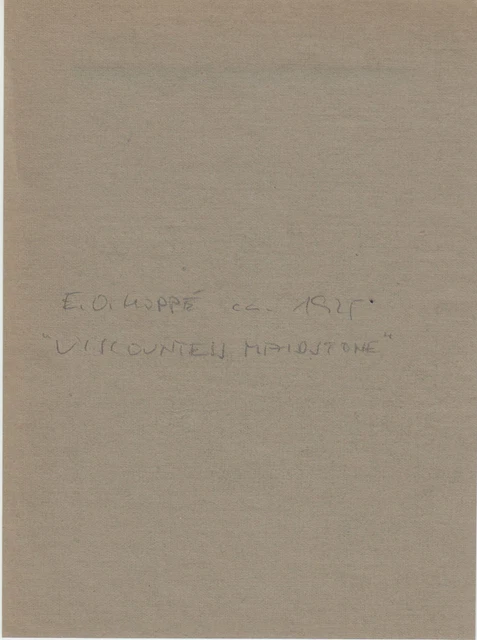 E.O. HOPPÉ cc. 1925
"VISCOUNTESS MAIDSTONE"